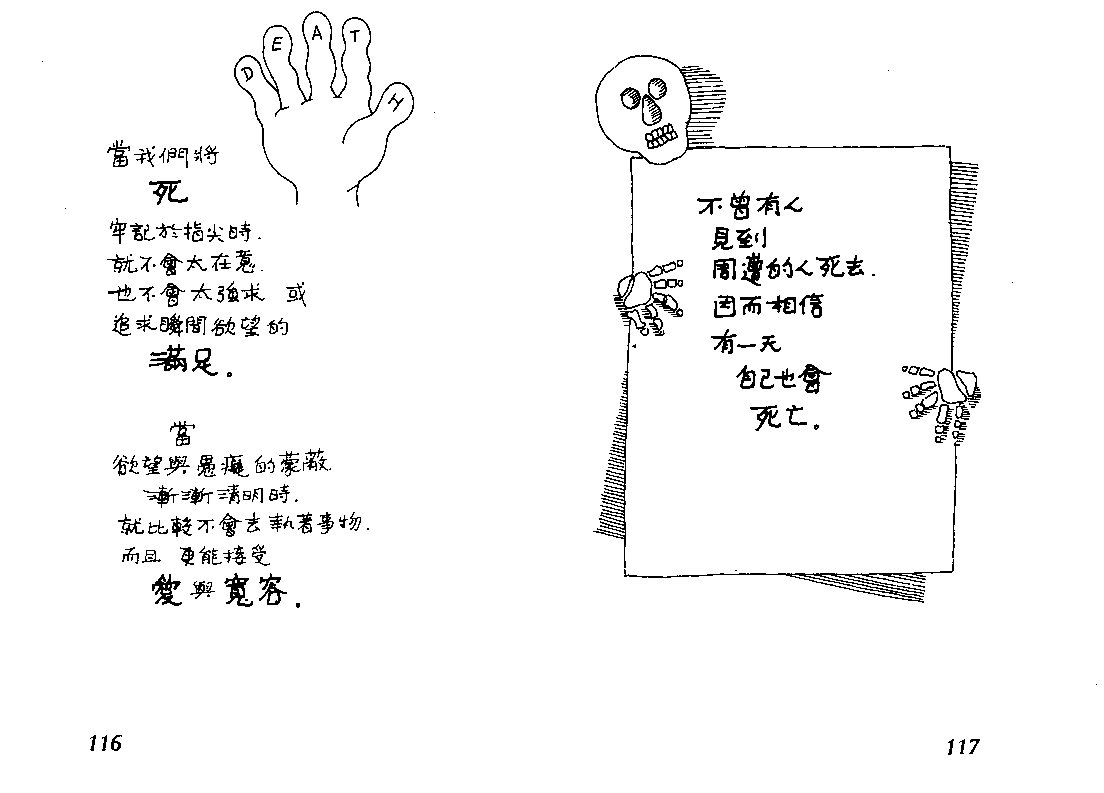 D E A T H
當我們將
死
牢記於指尖時.
就不會太在意.
也不會太強求 或
追求瞬間欲望的
滿足.
當
欲望與愚癡的蒙蔽.
漸漸清明時.
就比較不會去執著事物.
而且 更能接受
愛與寬容.
116
不曾有人
見到
周遭的人死去.
因而相信
有一天
自己也會
死亡.
117